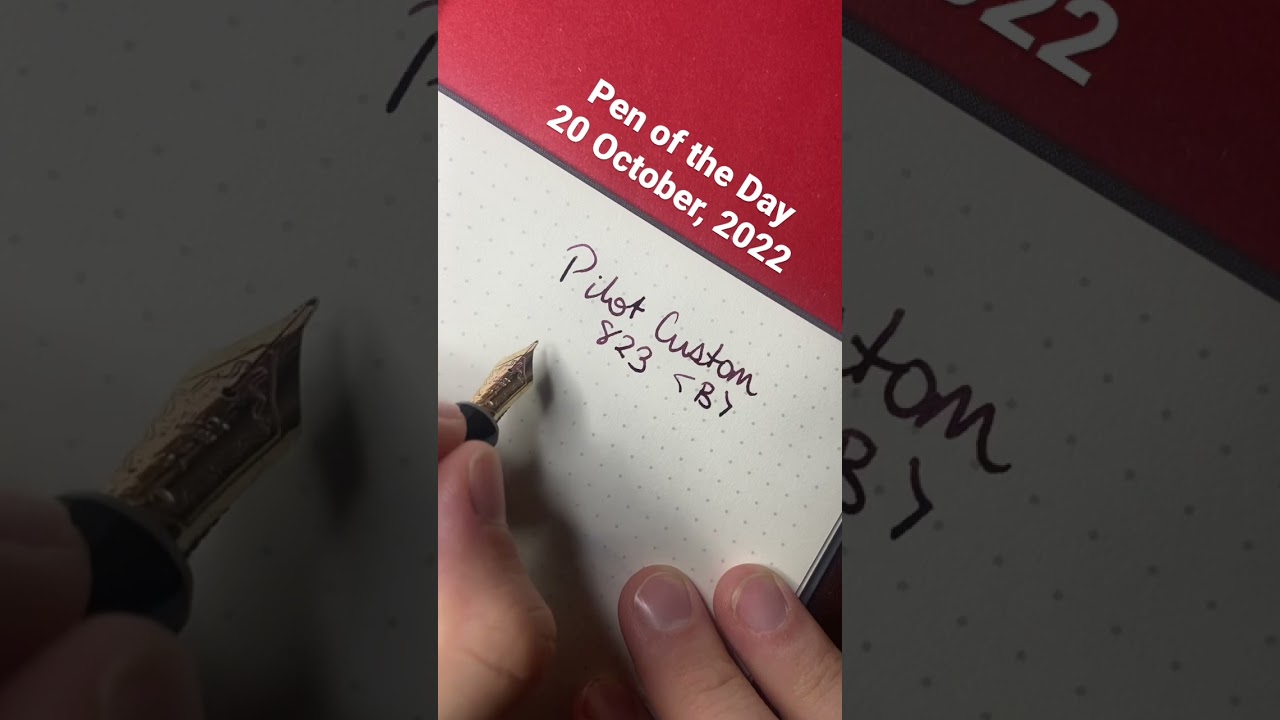 Pen of the Day
20 October, 2022
Pilot Custom
823 <B>